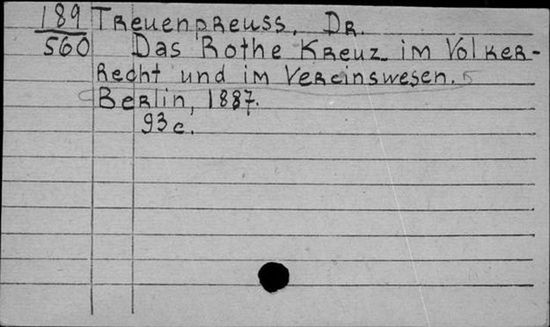 189 Treuenpreuss, Dr.
560 Das Rothe Kreuz im Volker-
Recht und im Vereinswesen.
Berlin, 1887.
93 c.